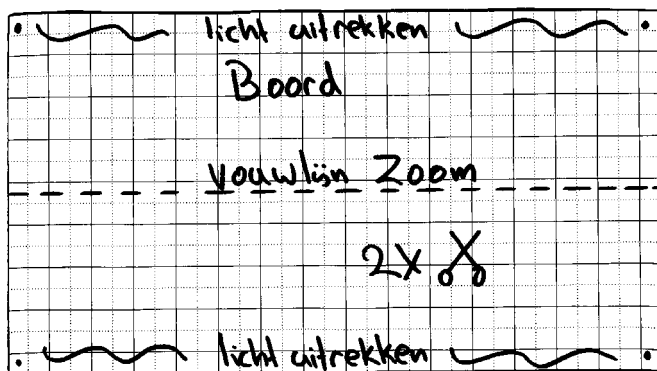 licht uitrekken
Boord
Vouwlijn Zoom
2X
licht uitrekken